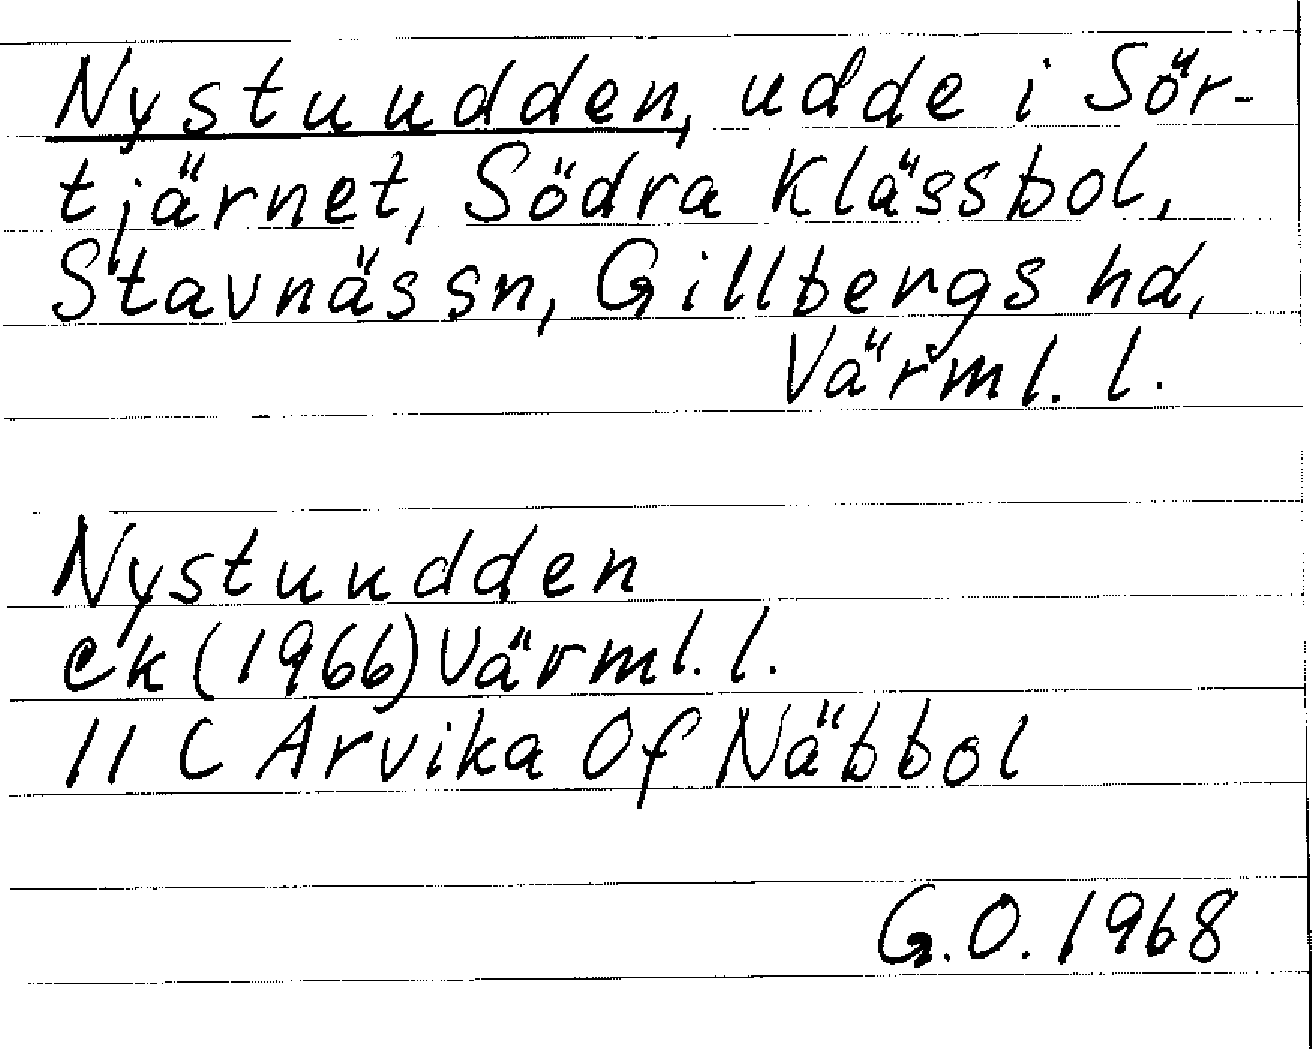 Nystuudden, udde i Sör-
tjärnet, Södra Klässbol,
Stavnäs sn, Gillbergs hd,
Värml. l.
Nystuudden
ek (1966) Värml. l.
11 C Arvika 0f Näbbol
G.O. 1968